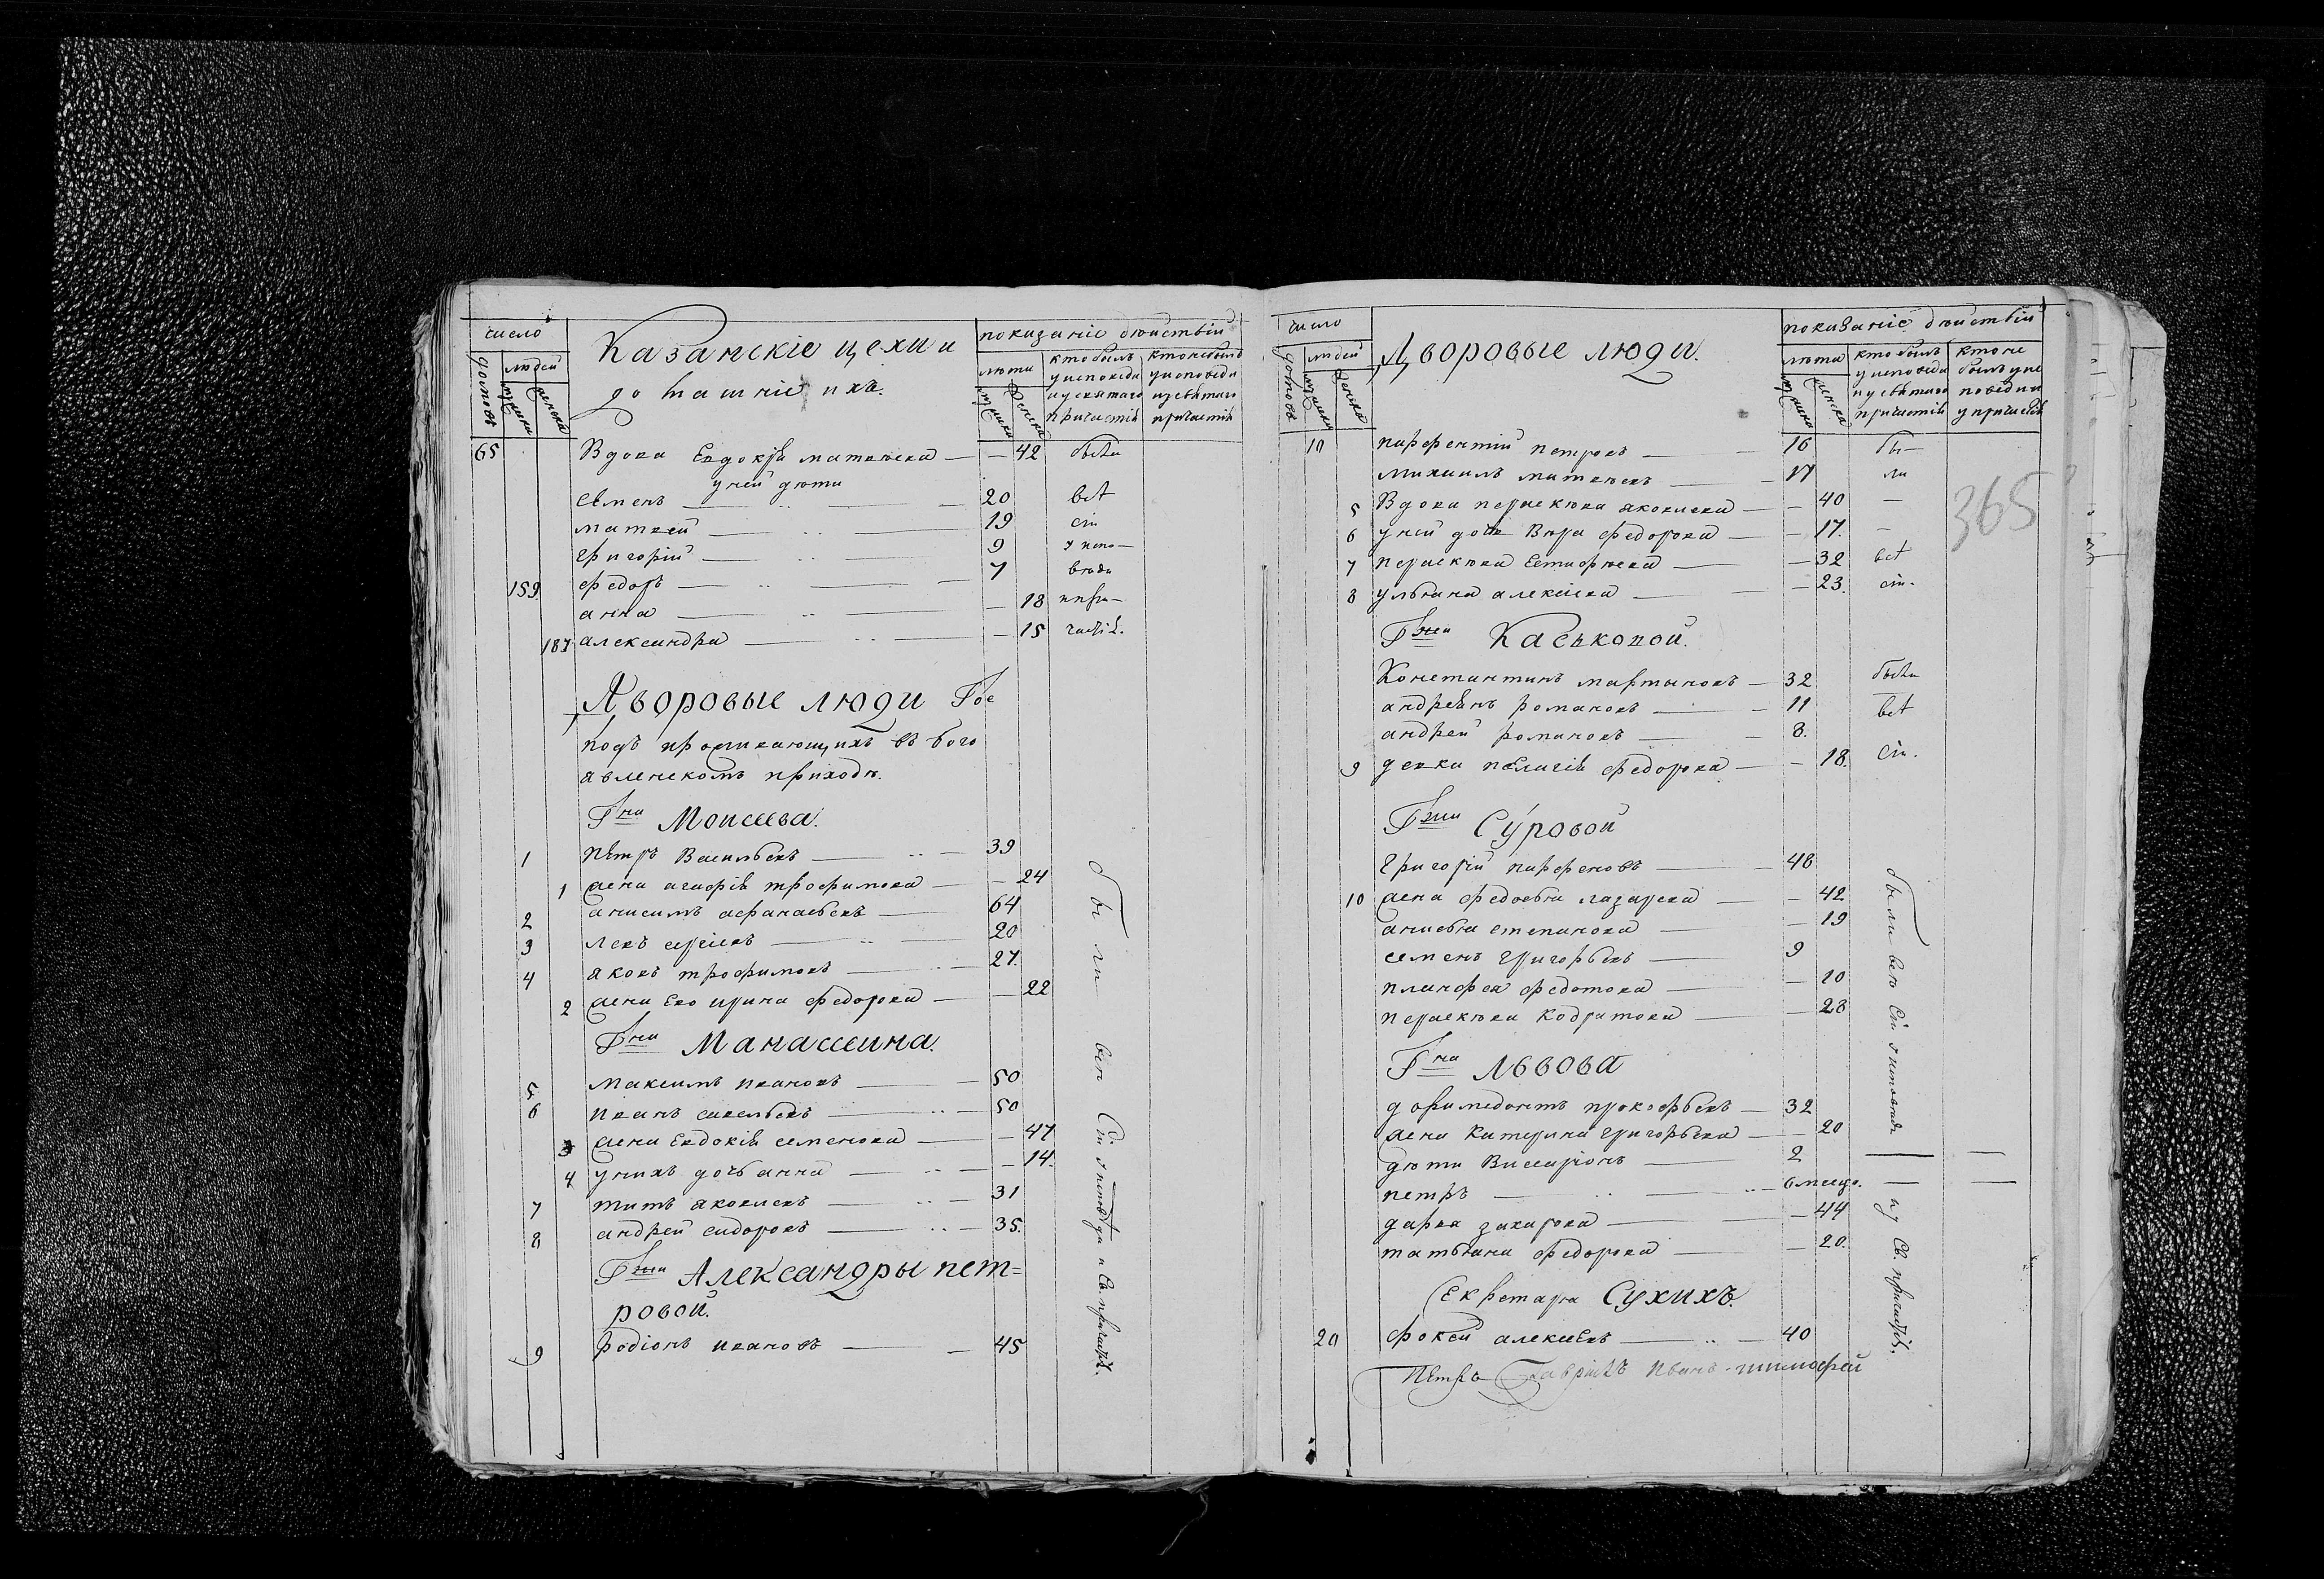 число
показаніе дѣйствій
Казанскіе цехи и
домашніе ихъ.
домовъ
людей
мужска
женска
лѣта
мужска
женска
кто былъ
у исповѣди
и у святаго
причастія
кто не былъ
у исповѣди
и у святаго
причастія
65 Вдова Евдокія матвѣева — — 42 были
у ней дѣти
семенъ — 20 всѣ
матвей — 19 сіи
григорій — 9 у испо—
159 федоръ — 7 вѣди
анна — — 18 и при—
187 александра — — 15 частія.
Дворовые люди Гос
подъ проживающихъ въ бого
явленскомъ приходѣ.
Гна Моисеева.
1 петръ Васильевъ — 39
1 жена агафія трофимова — — 24
2 анисимъ афанасьевъ — 64
3 левъ сергіевъ — 20
4 яковъ трофимовъ — 27.
2 жена Его ирина федорова — — 22
Гна Манассеина.
5 максимъ ивановъ — 50
6 иванъ савельевъ — 50
3 жена Евдокія семенова — — 47
4 у нихъ дочь анна — — 14.
7 титъ яковлевъ — 31
8 андрей сидоровъ — 35.
Гжи Александры пет=
ровой.
9 родіонъ ивановъ — 45
были всѣ сіи у исповѣди и Св. причастія.
число
показаніе дѣйствій
Дворовые люди.
домовъ
людей
мужска
женска
лѣта
мужска
женска
кто былъ
у исповѣди
и у святаго
причастія
кто не
былъ у ис
повѣди и
у причастія
10 парфентій петровъ — 16 бы—
михаилъ матвѣевъ — 17 ли
5 Вдова параскева яковлева — — 40 —
6 у ней дочь Вѣра федорова — — 17. —
7 параскева Евтифѣева — — 32 всѣ
8 ульяна алексіева — — 23. сіи.
365
Гжи Каськовой.
Константинъ мартыновъ — 32 были
андреянъ романовъ — 11 всѣ
андрей романовъ — 8.
9 девка пелагія федорова — — 18. сіи.
Гжи Суровой
григорій парфеновъ — 48
10 жена федосья лазарева — — 42
анисья степанова — — 19
семенъ григорьевъ — 9
гликерья федотова — — 10
параскева кодратова — — 28
Гна Львова
доримедонтъ прокофьевъ — 32
жена катерина григорьева — — 20
дѣти Виссаріонъ — 2 — —
петръ — 6 месяц. — —
дарья захарова — — 44
татьяна федорова — — 20.
Секретаря Сухихъ.
20 фокей алексеевъ — 40
были всѣ сіи у исповѣди и у Св. причастія.
Петръ Гавріилъ иванъ тимофей